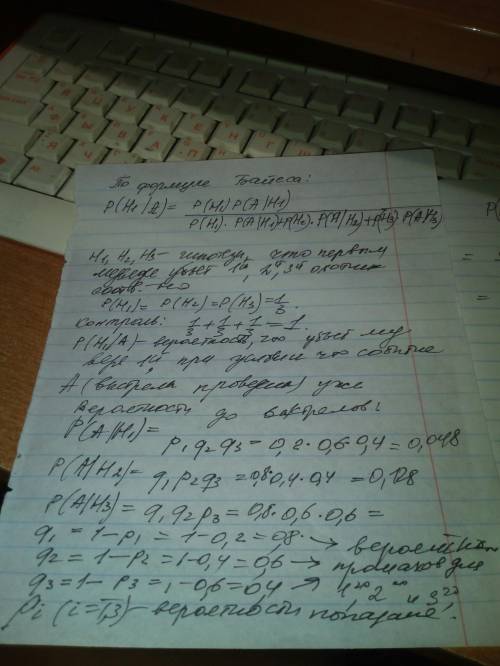 По формуле Байеса:
P(H1/A) = P(H1) P(A/H1)
P(H1) · P(A/H1) + P(H2) · P(A/H2) + P(H3) P(A/H3)
H1, H2, H3 – гипотезы, что первым
медведя убьет 1й, 2й, 3й охотник
соотв-но
P(H1) = P(H2) = P(H3) = 1/3.
Контроль: 1/3 + 1/3 + 1/3 = 1.
P(H1/A) – вероятность, что убьет мед
ведя 1й при условии что событие
A (выстрелы проведены) уже
Вероятности до выстрелов:
P(A/H1) =
p1 q2 q3 = 0,2 · 0,6 · 0,4 = 0,048
P(A/H2) = q1 p2 q3 = 0,8 · 0,4 · 0,4 = 0,128
P(A/H3) = q1 q2 p3 = 0,8 · 0,6 · 0,6 =
q1 = 1 – p1 = 1 – 0,2 = 0,8 → вероятн.
q2 = 1 – p2 = 1 – 0,4 = 0,6 → промахов для
q3 = 1 – p3 = 1 – 0,6 = 0,4 → 1го 2го и 3го
pi (i = 1,3) – вероятности попадане!